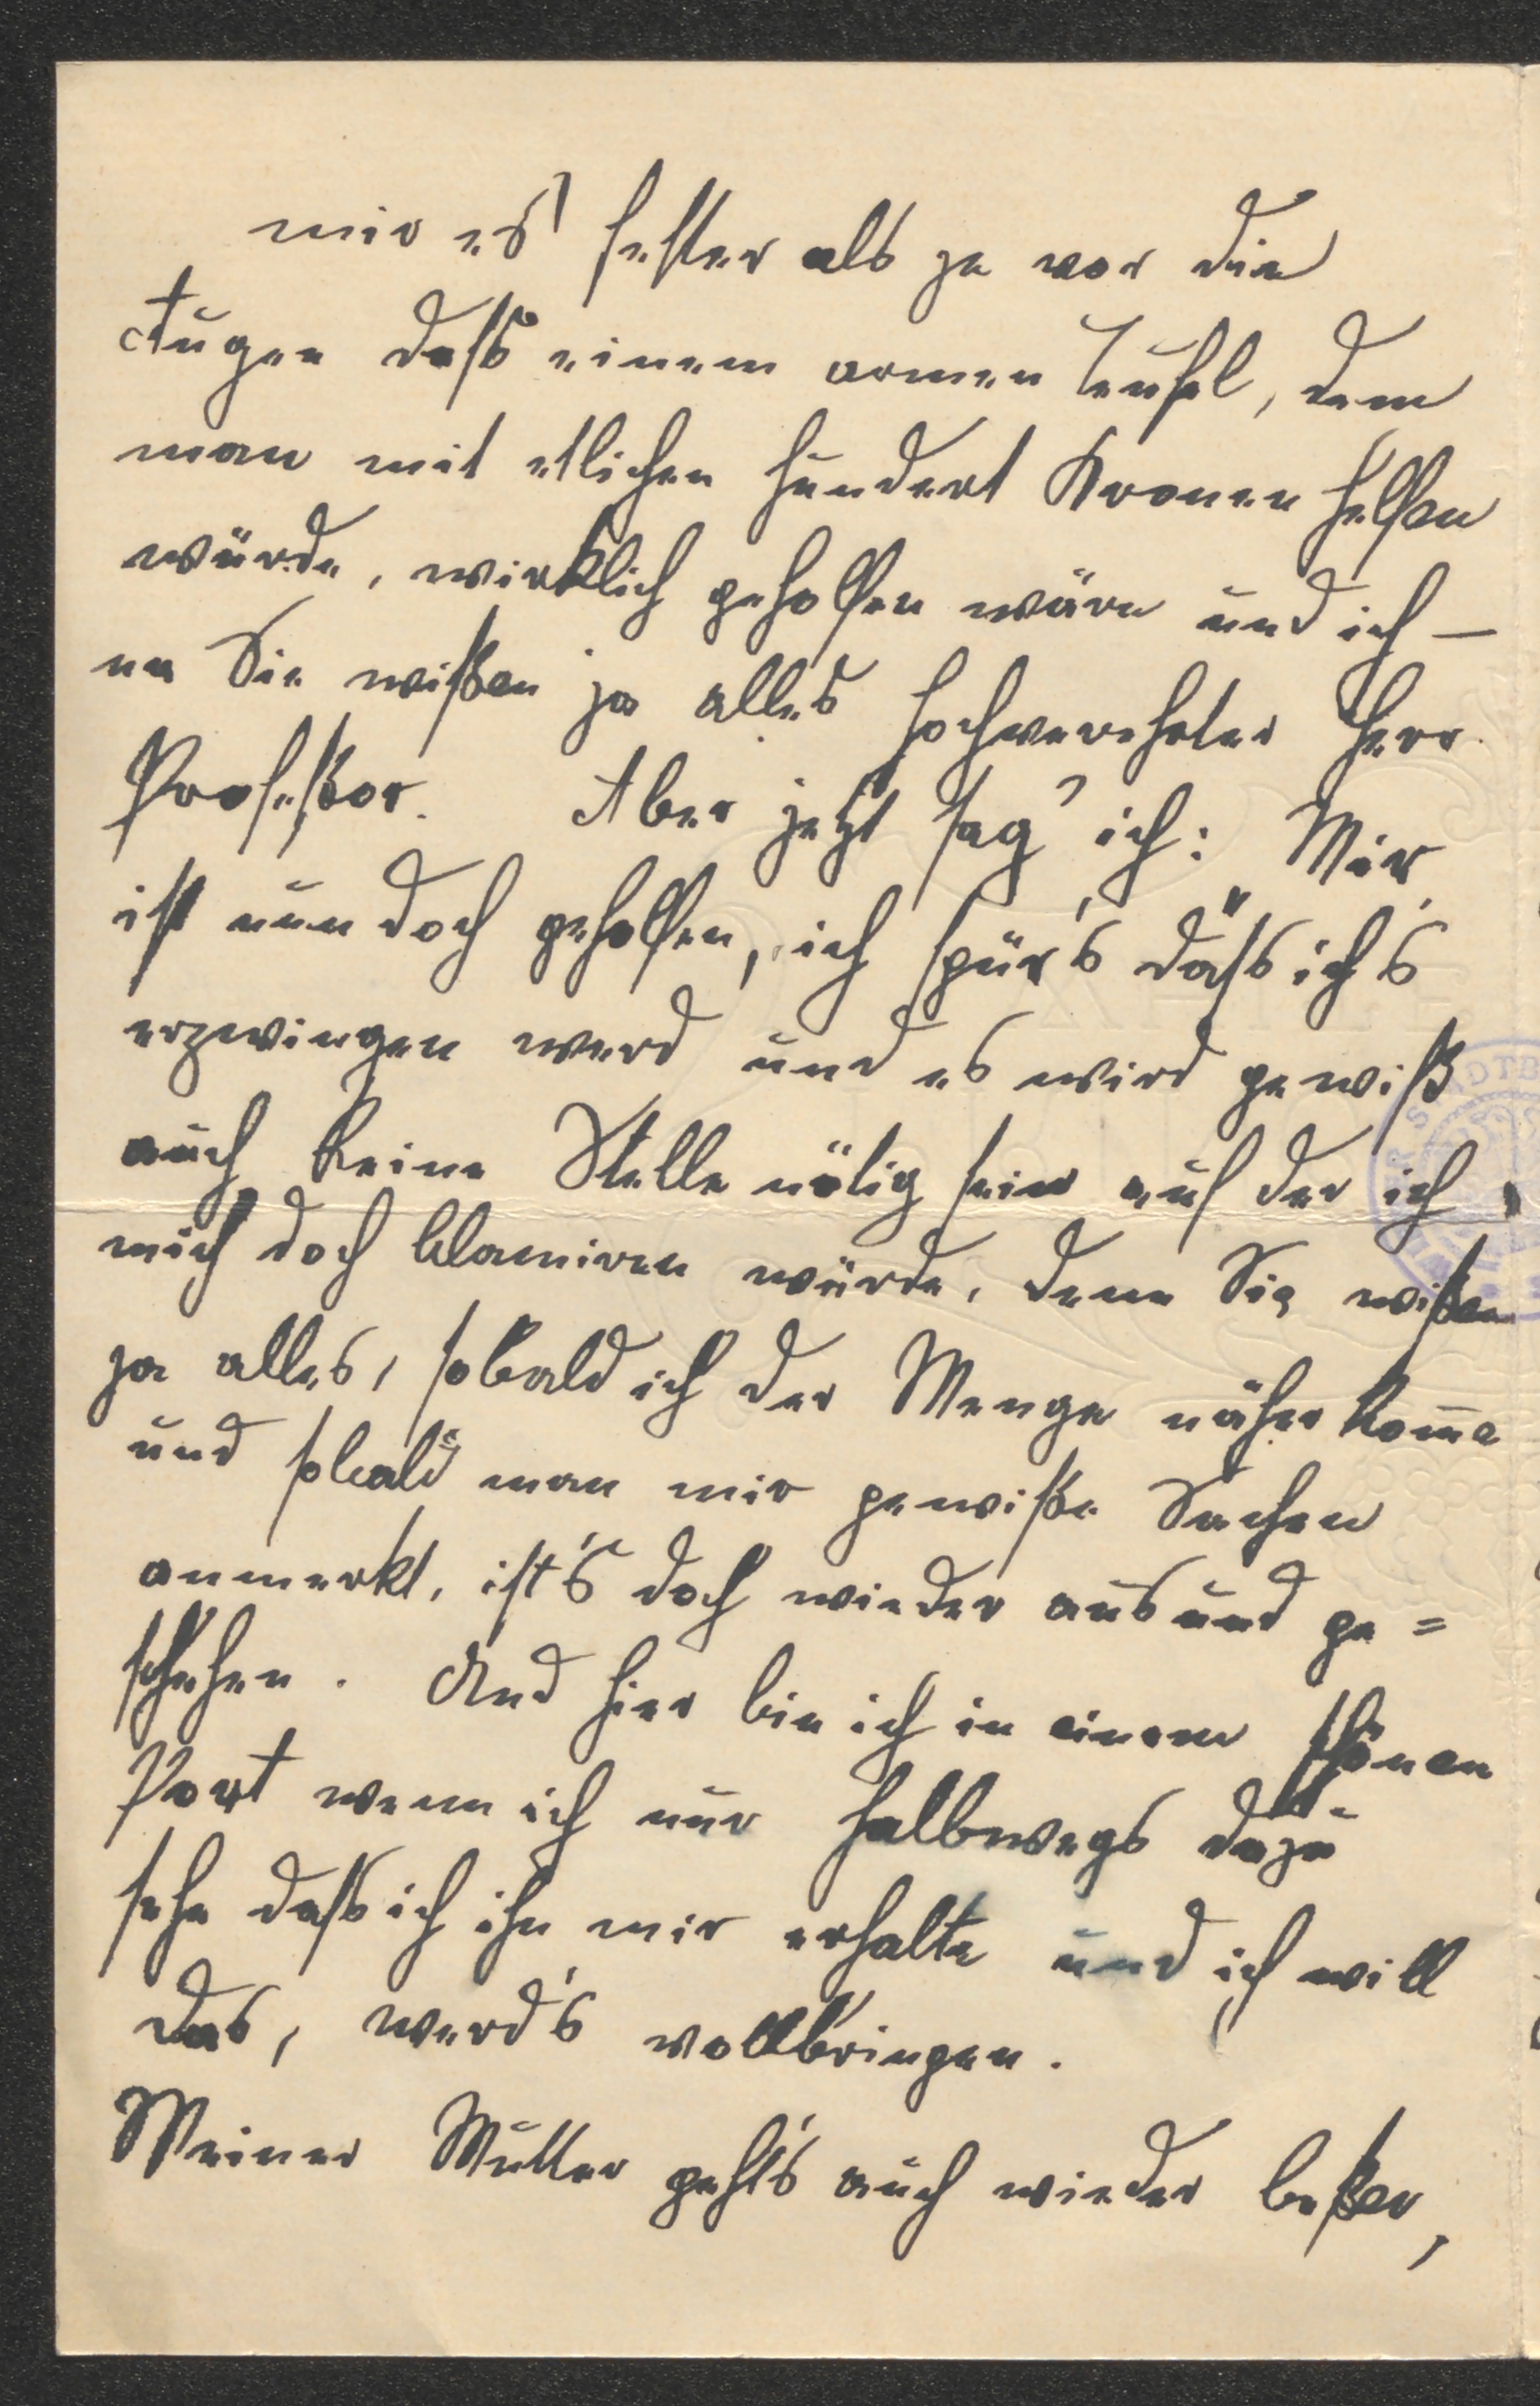 mir es fester als je vor die
Augen dass einem armen Teufel, dem
man mit etlichen hundert Kronen helfen
würde, wirklich geholfen wäre und ich —
na Sie wißen ja alles hochverehrter Herr
Profeßor. Aber jetzt sag' ich: Mir
ist nun doch geholfen, ich spür's dass ich's
erzwingen werd und es wird gewiß
auch keine Stelle nötig sein auf der ich
mich doch blamiren würde, denn Sie wißen
ja alles, sobald ich der Menge näher kom̅e
und sobald man mir gewiße Sachen
anmerkt, ist's doch wieder aus und ge=
schehen. Und hier bin ich in einem schönen
Port wenn ich nur halbwegs dazu
sehe dass ich ihn mir erhalte und ich will
das, werd's vollbringen.
Meiner Mutter geht's auch wieder beßer,